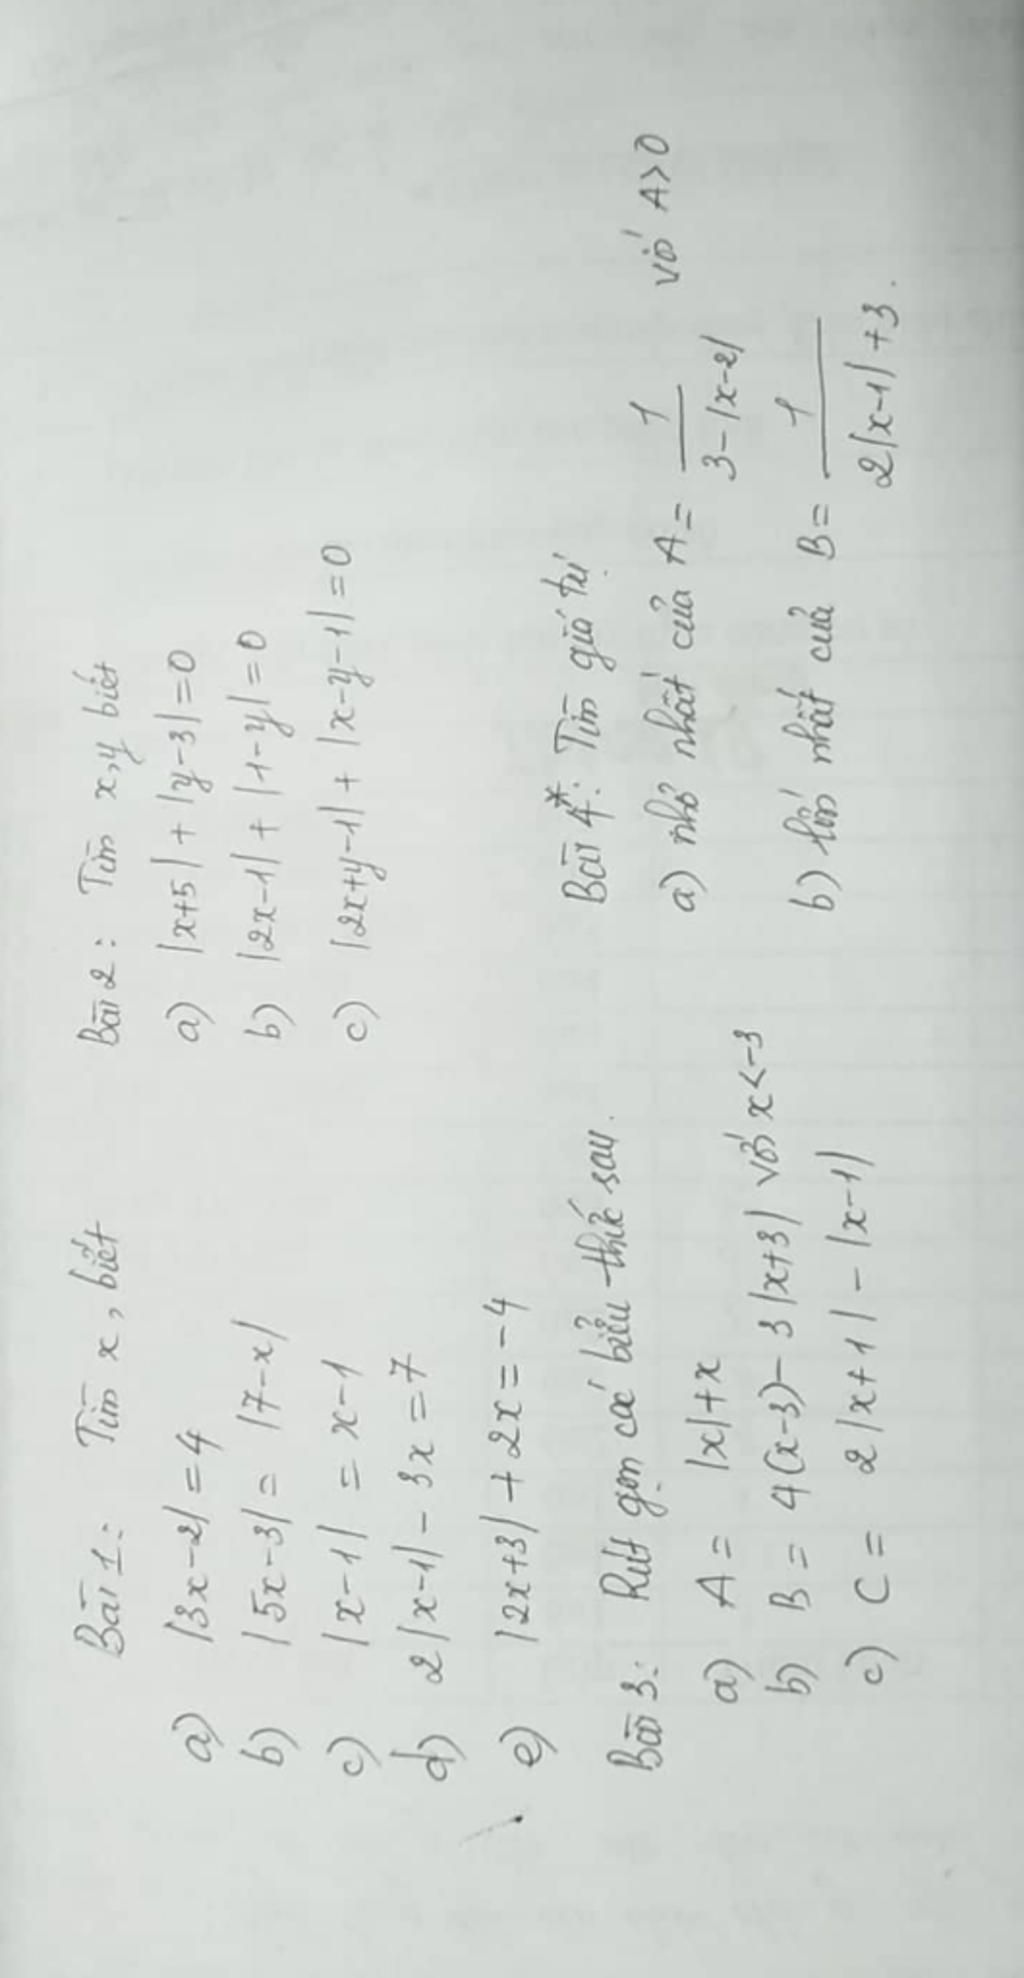 Bài 1: Tìm x, biết
a) |3x-2| = 4
b) |5x-3| = |7-x|
c) |x-1| = x-1
d) 2|x-1| - 3x = 7
e) |2x+3| + 2x = -4
Bài 2: Tìm x,y biết
a) |x+5| + |y-3| = 0
b) |2x-1| + |1-y| = 0
c) |2x+y-1| + |x-y-1| = 0
Bài 3: Rút gọn các biểu thức sau.
a) A = |x|+x
b) B = 4(x-3) - 3|x+3| với x<-3
c) C = 2|x+1| - |x-1|
Bài 4*: Tìm giá trị
a) nhỏ nhất của A = 1/(3-|x-2|) với A>0
b) lớn nhất của B = 1/(2|x-1|+3).